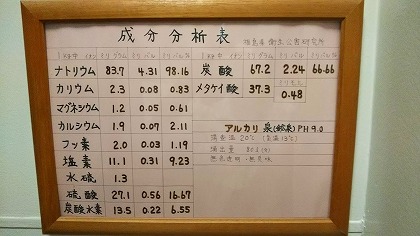 成分分析表
衛生公害研究所
1K中 イオン ミリグラム ミリバル ミリバル%
ナトリウム 83.7 4.31 98.16
カリウム 2.3 0.08 0.83
マグネシウム 1.2 0.05 0.61
カルシウム 1.9 0.07 2.11
フッ素 2.0 0.03 1.19
塩素 11.1 0.31 9.23
水硫 1.3
硫酸 27.1 0.56 16.67
炭酸水素 13.5 0.22 6.55
1K中 イオン ミリグラム ミリバル ミリバル%
炭酸 67.2 2.24 66.66
メタケイ酸 37.3 ミリモル 0.48
アルカリ泉(鉱泉) PH9.0
湧出量
無色透明・無臭味